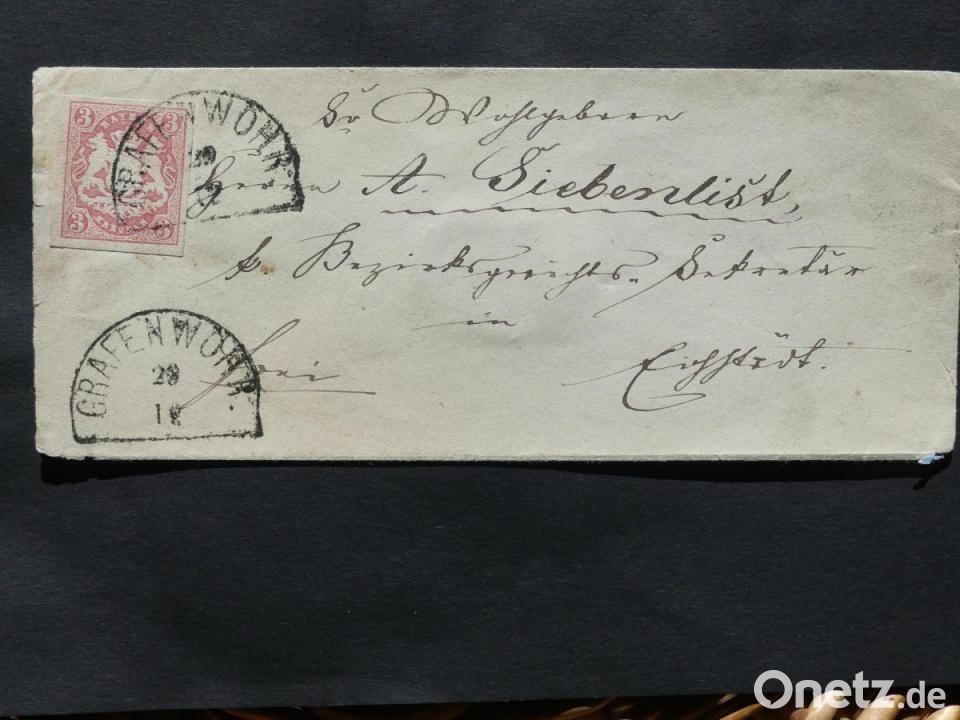 3 3
BAYERN
3 3
GRAFENWÖHR
29
Sr Wohlgeborn
Herrn A. Siebenlist,
k. Bezirksgerichts-Sekretär
in
Eichstädt.
frei
GRAFENWÖHR.
29
12
Onetz.de